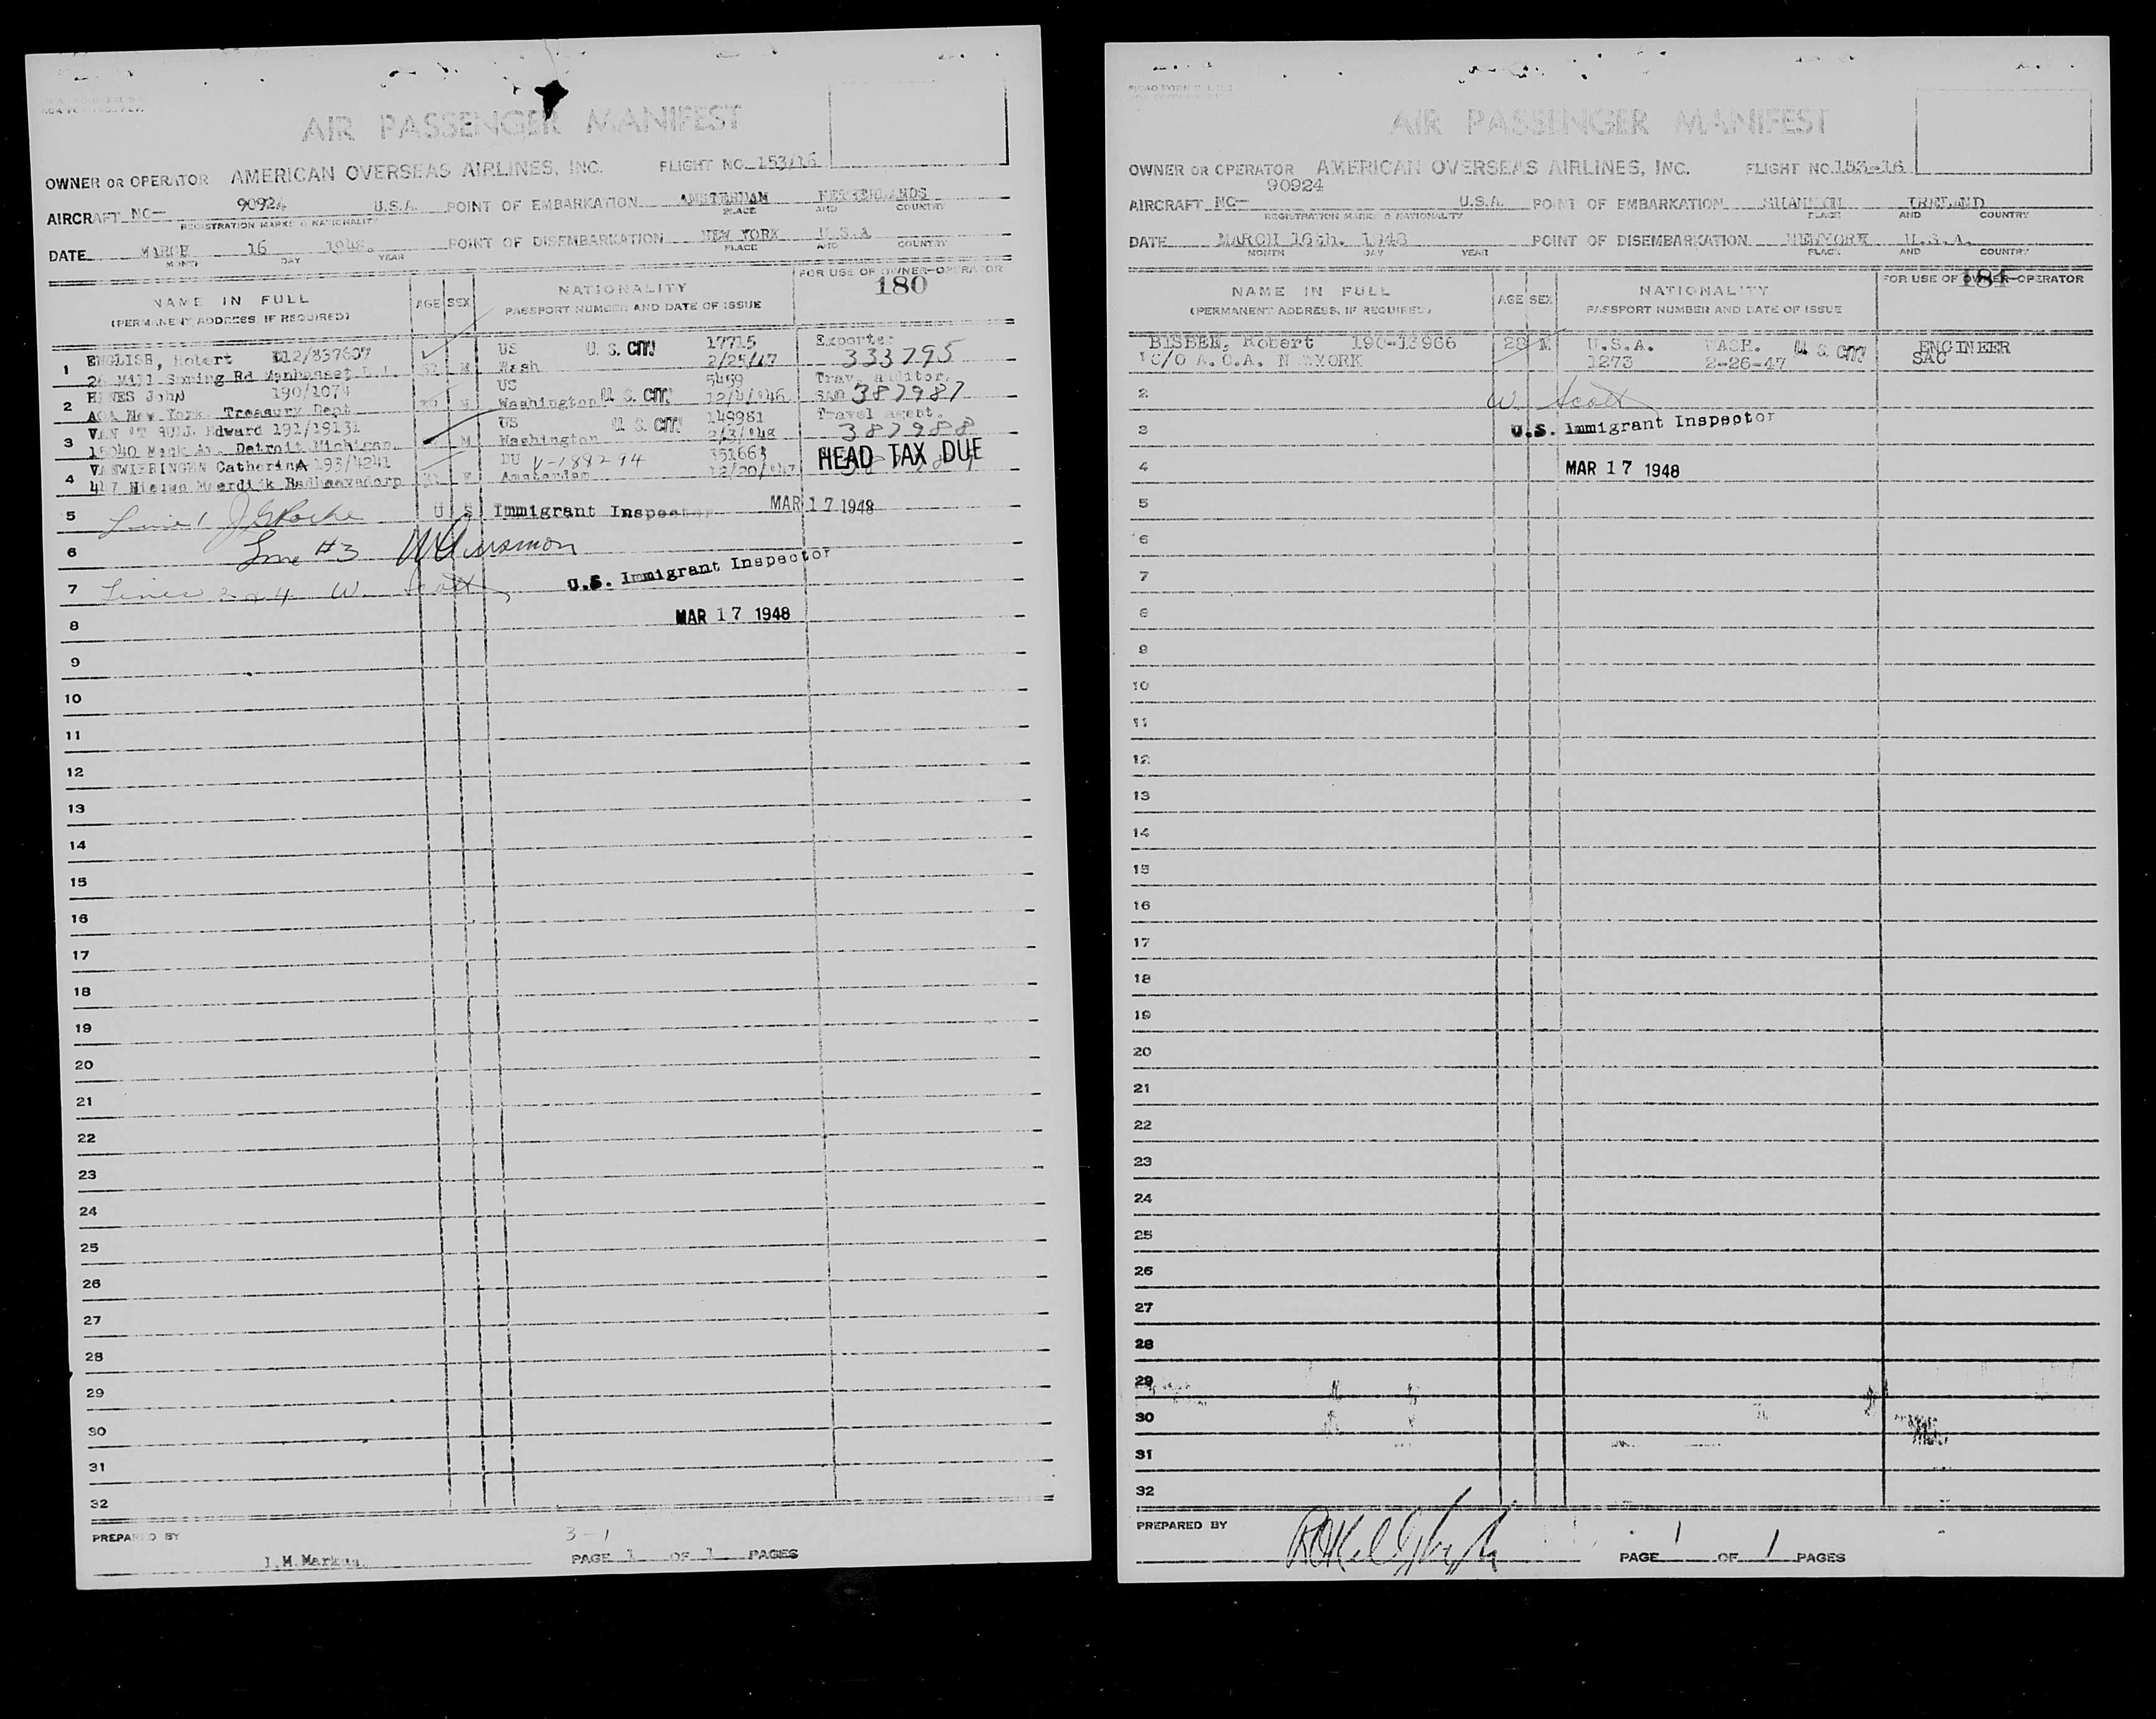 AIR PASSENGER MANIFEST
OWNER OR OPERATOR AMERICAN OVERSEAS AIRLINES, INC. FLIGHT NO. 153/16
AIRCRAFT NC— 90924 U.S.A. POINT OF EMBARKATION AMSTERDAM NETHERLANDS
REGISTRATION MARKS & NATIONALITY PLACE AND COUNTRY
DATE MARCH 16 1948. POINT OF DISEMBARKATION NEW YORK U.S.A
MONTH DAY YEAR PLACE AND COUNTRY
NAME IN FULL AGE SEX NATIONALITY FOR USE OF OWNER-OPERATOR
(PERMANENT ADDRESS, IF REQUIRED) PASSPORT NUMBER AND DATE OF ISSUE 180
1 ENGLISH, Robert 012/837607 US U. S. CIT. 17715 Exporter
26 Mill Spring Rd Manhasset L.I. M Wash 2/25/47 333795
2 HINES John 190/1074 US U. S. CIT. 5459 Trav. auditor.
AOA New York. Treasury Dept. M Washington 12/4/'46 387987
3 VAN 'T Edward 191/19131 US U. S. CIT. 149981 Travel agent.
15040 Mack Av. Detroit Michigan. M Washington 2/3/'48 387988
4 VANWIERINGEN CatherinA 193/4241 DU V-188294 351663 HEAD TAX DUE
447 Nieuwe Meerdijk Badhoevedorp F Amsterdam 12/20/'47
5 Line 1 J G Roche U S Immigrant Inspector MAR 17 1948
6 Line #3
7 Lines 2 & 4 W. Scott U.S. Immigrant Inspector
8 MAR 17 1948
9
10
11
12
13
14
15
16
17
18
19
20
21
22
23
24
25
26
27
28
29
30
31
32
PREPARED BY 3-1
J.M.Markus. PAGE 1 OF 1 PAGES
AIR PASSENGER MANIFEST
OWNER OR OPERATOR AMERICAN OVERSEAS AIRLINES, INC. FLIGHT NO. 153-16
AIRCRAFT NC— 90924 U.S.A. POINT OF EMBARKATION SHANNON IRELAND
REGISTRATION MARKS & NATIONALITY PLACE AND COUNTRY
DATE MARCH 16th. 1948 POINT OF DISEMBARKATION NEWYORK U.S.A.
MONTH DAY YEAR PLACE AND COUNTRY
NAME IN FULL AGE SEX NATIONALITY FOR USE OF OWNER-OPERATOR 181
(PERMANENT ADDRESS, IF REQUIRED) PASSPORT NUMBER AND DATE OF ISSUE
BISBEN, Robert 190-13966 28 M U.S.A. WASH. U. S. CIT. ENGINEER
1 C/O A.O.A. NEWYORK 1273 2-26-47 SAC
2 W. Scott
3 U.S. Immigrant Inspector
4 MAR 17 1948
5
6
7
8
9
10
11
12
13
14
15
16
17
18
19
20
21
22
23
24
25
26
27
28
29
30
31
32
PREPARED BY
PAGE 1 OF 1 PAGES